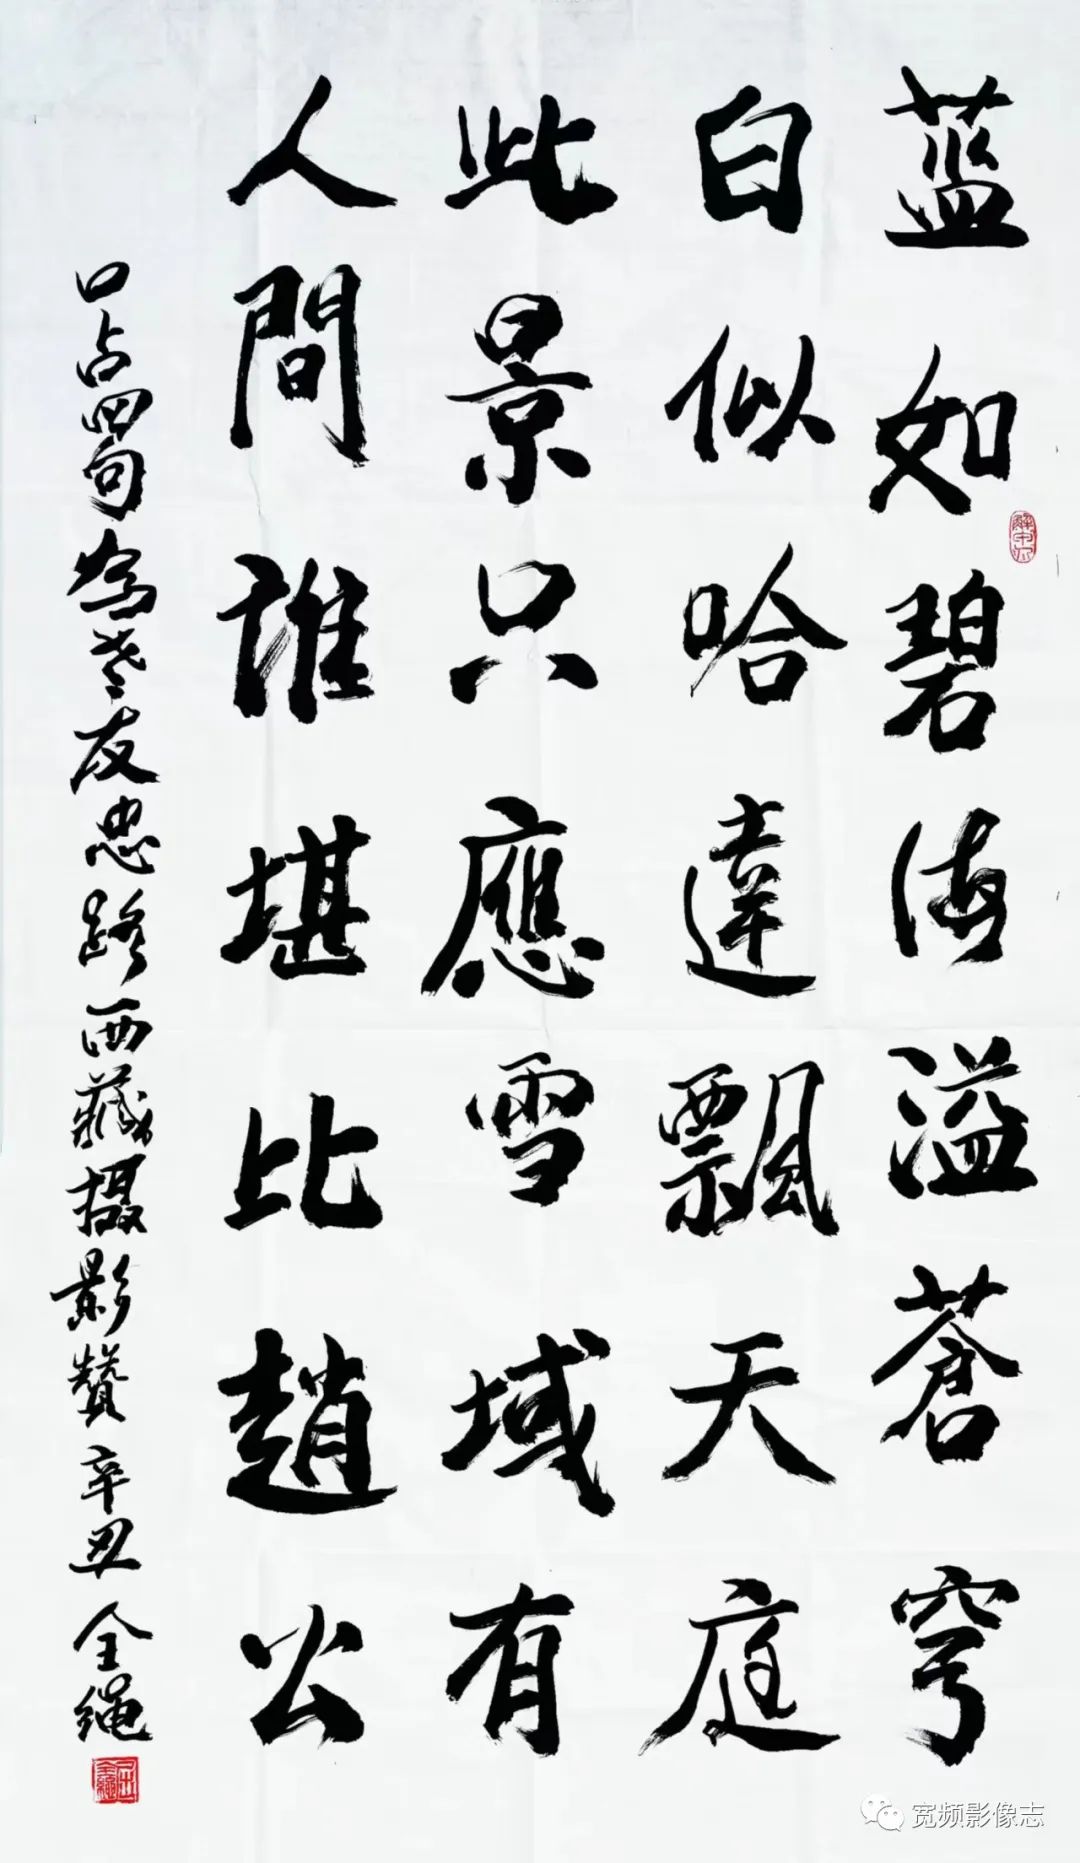 藍如碧海溢蒼穹
白似哈達飄天庭
此景只應雪域有
人間誰堪比趙公
口占四句為老友忠路西藏摄影贊辛丑全繩
宽频影像志